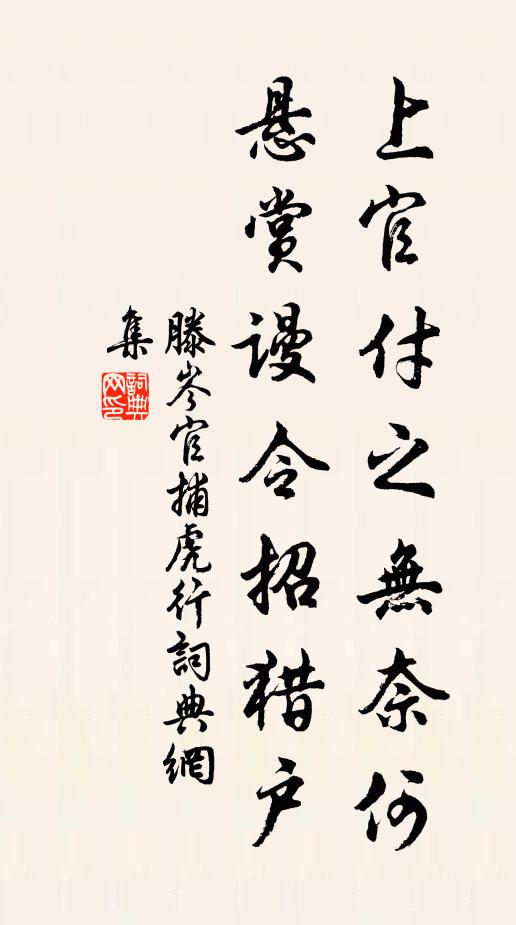 上官付之無奈何
悬賞謾令招猎户
滕岑官捕虎行詞典網
集
詞典网印